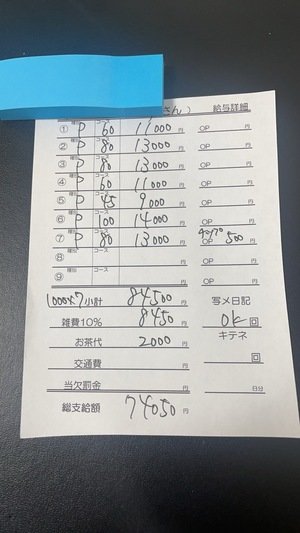 さん） 給与詳細
① 種別 P コース 60 11000円 OP 円
② 種別 P コース 80 13000円 OP 円
③ 種別 P コース 80 13000円 OP 円
④ 種別 P コース 60 11000円 OP 円
⑤ 種別 P コース 45 9000円 OP 円
⑥ 種別 P コース 100 14000円 OP 円
⑦ 種別 P コース 80 13000円 OP 500円
⑧ 種別 コース 円 OP 円
⑨ 種別 コース 円 OP 円
1000×7 小計 84500円 写メ日記
雑費10% 8450円 OK 回
お茶代 2000円 キテネ
交通費 円 回
当欠罰金 円 日分
総支給額 74050円